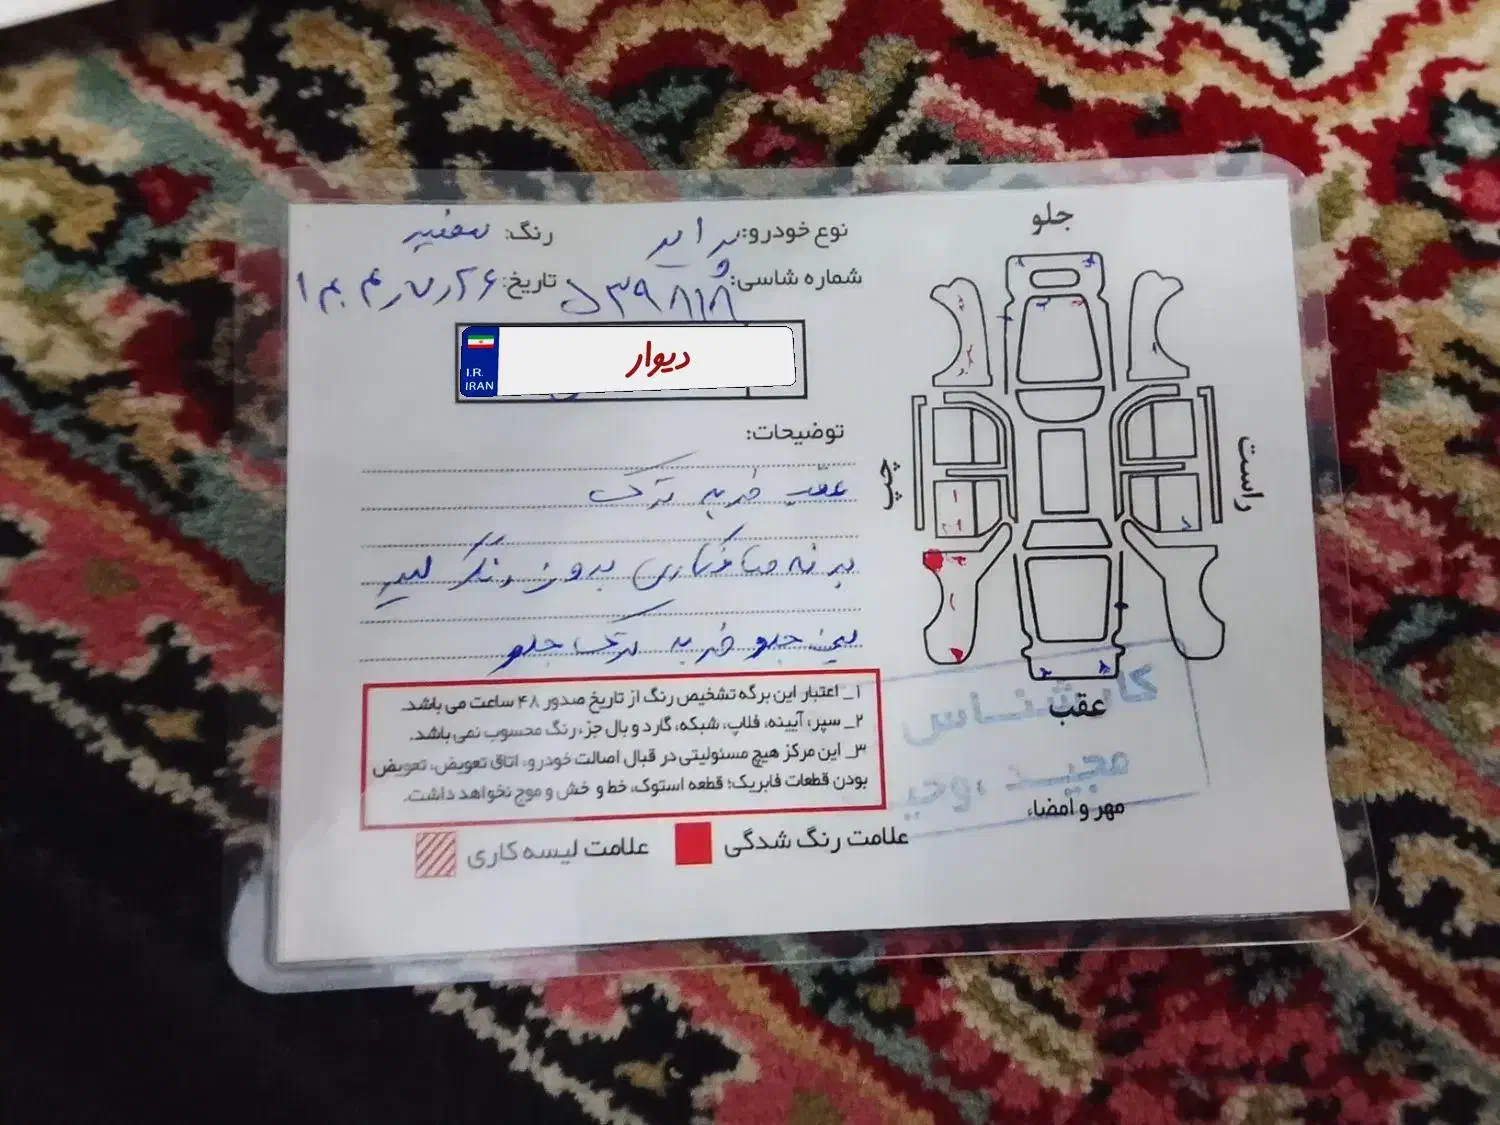 جلو
نوع خودرو: پراید رنگ: سفید
شماره شاسی: ۵۳۹۸۱۸ تاریخ:
I.R.
IRAN
دیوار
توضیحات:
راست
چپ
عقب ضربه ترک
بدنه صافکاری بدون رنگ لیسه
سینی جلو ضربه ترک جلو
۱_ اعتبار این برگه تشخیص رنگ از تاریخ صدور ۴۸ ساعت می باشد.
۲_ سپر، آیینه، فلاپ، شبکه، گارد و بال جزء رنگ محسوب نمی باشد.
۳_ این مرکز هیچ مسئولیتی در قبال اصالت خودرو، اتاق تعویض، تعویض
بودن قطعات فابریک؛ قطعه استوک، خط و خش و موج نخواهد داشت.
عقب
کارشناس
مجید
مهر و امضاء
علامت رنگ شدگی
علامت لیسه کاری